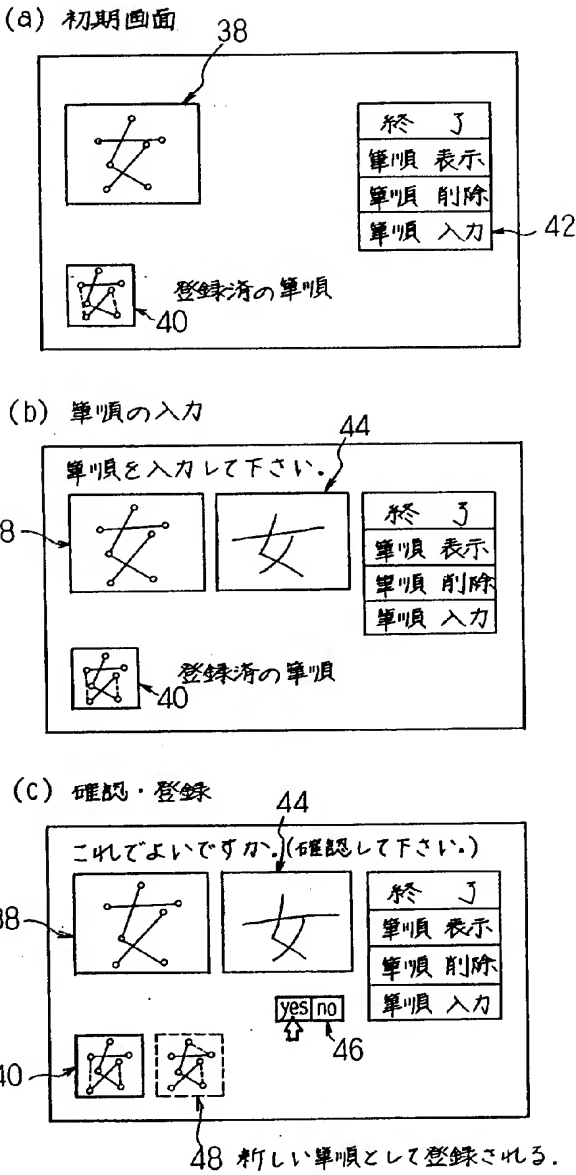 (a) 初期画面
38
女
終 了
筆順 表示
筆順 削除
筆順 入力
42
女
登録済の筆順
40
(b) 筆順の入力
44
筆順を入力して下さい。
8
女
女
終 了
筆順 表示
筆順 削除
筆順 入力
女
登録済の筆順
40
(c) 確認・登録
44
これでよいですか。(確認して下さい。)
38
女
女
終 了
筆順 表示
筆順 削除
筆順 入力
yes no
46
40
女
女
48 新しい筆順として登録される.